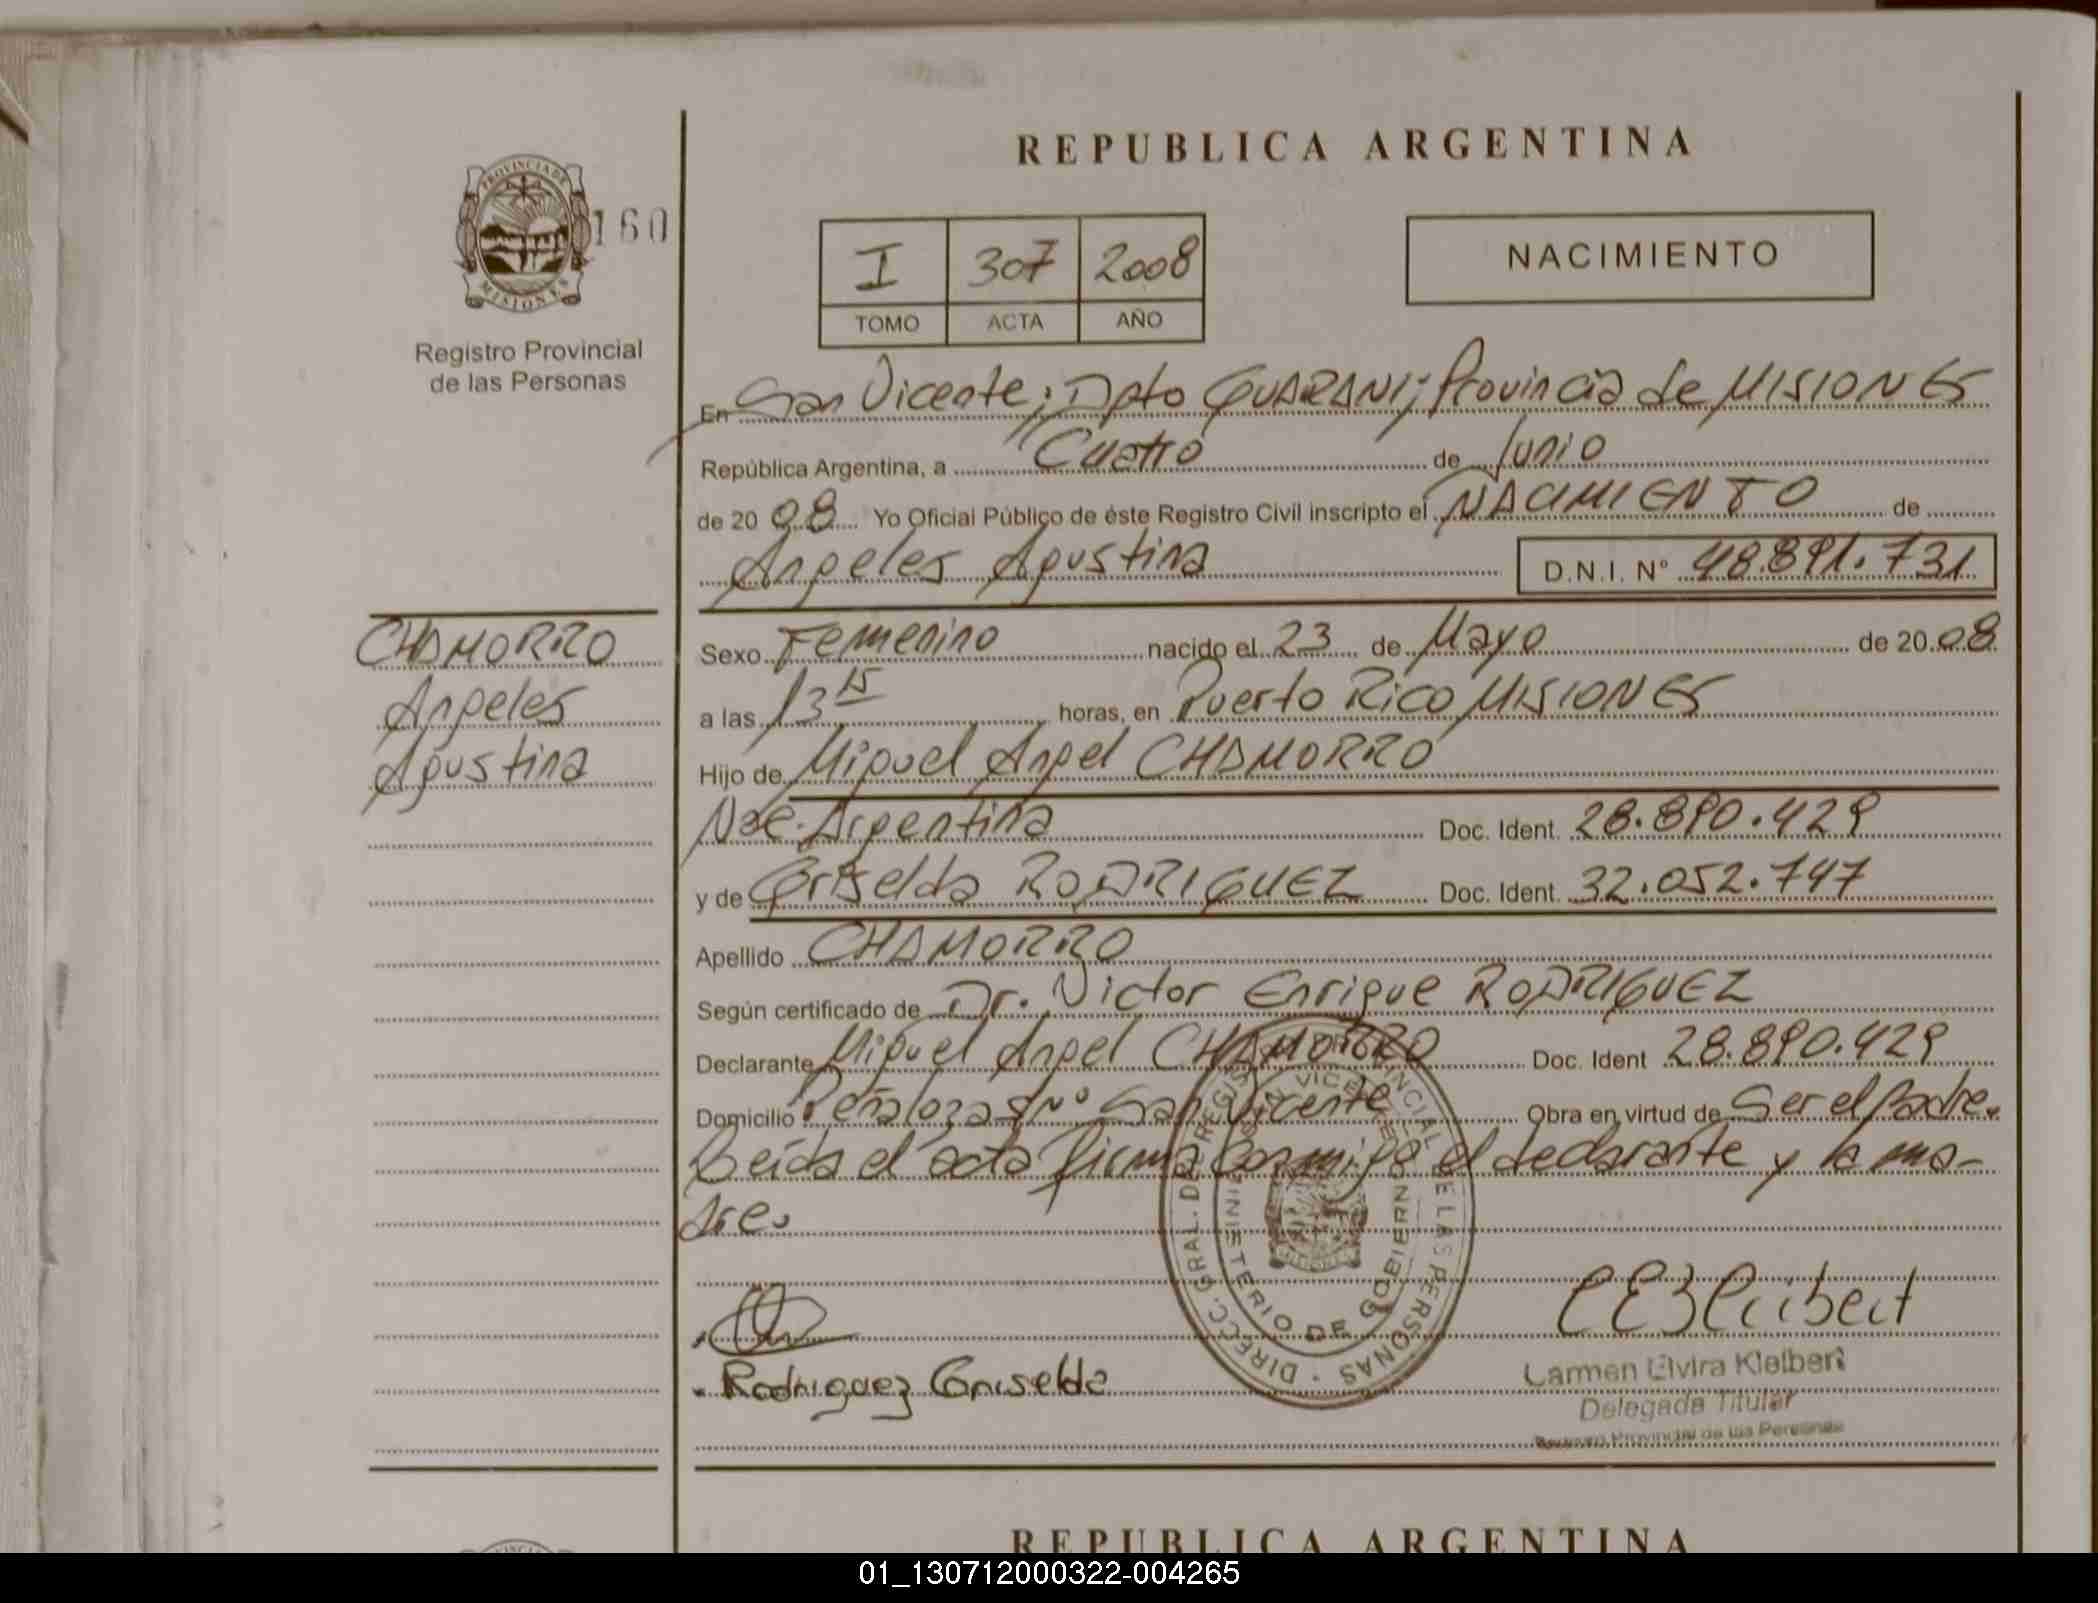 REPUBLICA ARGENTINA
PROVINCIA DE
MISIONES
160
Registro Provincial
de las Personas
I 307 2008
TOMO ACTA AÑO
NACIMIENTO
En San Vicente; Dpto GUARANI; Provincia de MISIONES
República Argentina, a Cuatro de Junio
de 20 08 Yo Oficial Público de éste Registro Civil inscripto el NACIMIENTO de
Angeles Agustina D.N.I. N° 48.891.731
CHAMORRO
Angeles
Agustina
Sexo Femenino nacido el 23 de Mayo de 20 08
a las 13 15 horas, en Puerto Rico MISIONES
Hijo de Miguel Angel CHAMORRO
Nac. Argentina Doc. Ident. 28.890.429
y de Griselda RODRIGUEZ Doc. Ident. 32.052.747
Apellido CHAMORRO
Según certificado de Dr. Victor Enrique RODRIGUEZ
Declarante Miguel Angel CHAMORRO Doc. Ident 28.890.429
Domicilio Peñaloza s/nº San Vicente Obra en virtud de Ser el Padre.
Leída el acta firma conmigo el declarante y la ma-
dre.
DIRECC. GRAL. DE REGISTRO PROVINCIAL DE LAS PERSONAS
MINISTERIO DE GOBIERNO
SAN VICENTE
Rodriguez Griselda
Carmen Elvira Kleibert
Delegada Titular
Registro Provincial de las Personas
REPUBLICA ARGENTINA
01_130712000322-004265